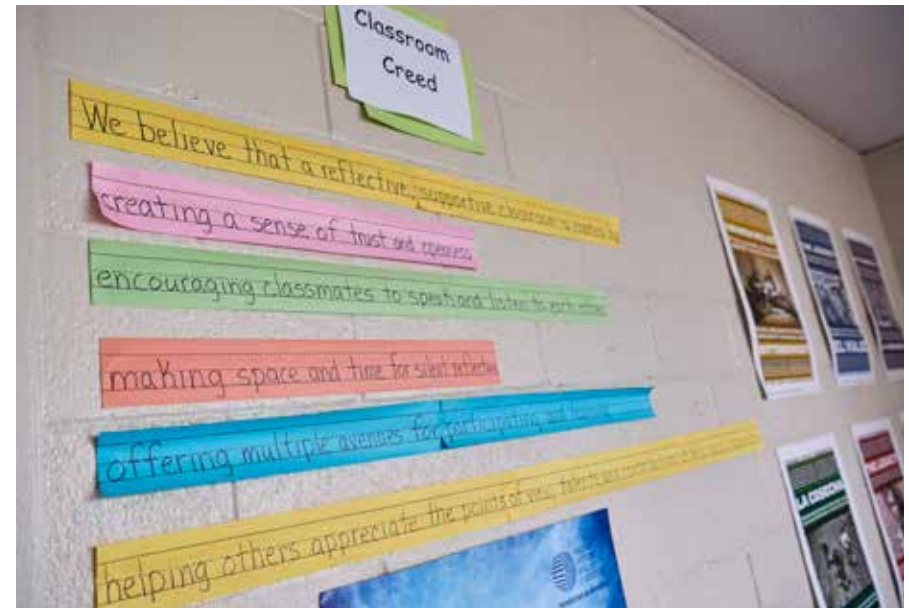 Classroom
Creed
We believe that a reflective, supportive classroom is created by
creating a sense of trust and openness
encouraging classmates to speak and listen to each other
making space and time for silent reflection
offering multiple avenues for participating and learning
helping others appreciate the points of view, talents and contributions of